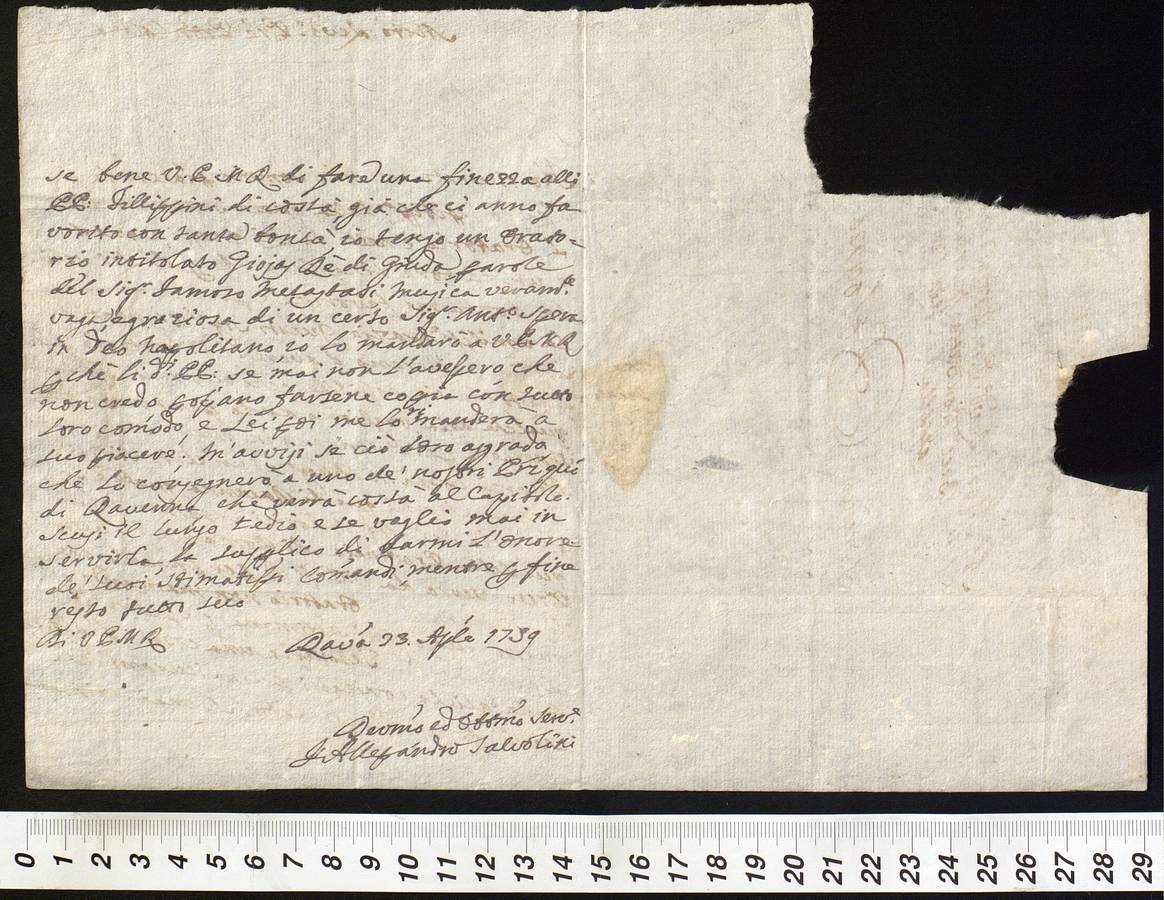 se bene V. P. M. R. di fare una finezza alli
PP: Fillippini di costà già che ci anno fa
vorito con tanta bontà, io tengo un Orato=
rio intitolato Gioas Rè di Giuda parole
del Sigr. Famoso Metastasi Musica veramte.
vaga, e graziosa di un certo Sigr. Anto. Spera
in Deo Napolitano io lo mandarò a V P M R
che li di. PP: se mai non l'avessero che
non credo possano farsene copia con tutto
loro comodo e Lei poi me lo rimanderà a
suo piacere. M'avvisi se ciò loro aggrada
che lo consegnerò a uno de' nostri
di Ravenna che verrà costà al Capitolo.
Scusi il lungo tedio e se vaglio mai in
servirla, la supplico di darmi l'onore
de' suoi stimatissi comandi mentre p fine
resto tutto suo
Di V P M R Rava 23. Aple 1739
Devmo ed Obbmo Serve.
F. Allessandro Salvolini
0 1 2 3 4 5 6 7 8 9 10 11 12 13 14 15 16 17 18 19 20 21 22 23 24 25 26 27 28 29